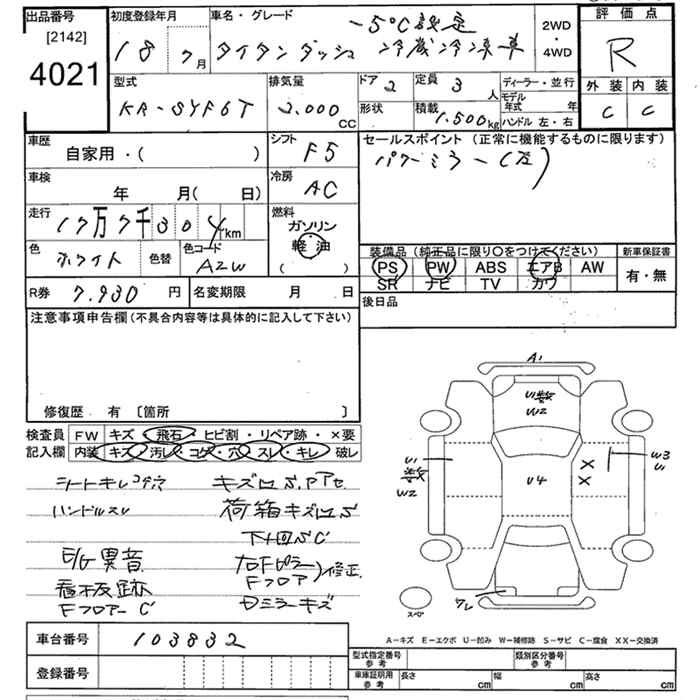 出品番号
[2142]
4021
初度登録年月
18 年 7 月
車名・グレード
タイタンダッシュ
-5℃設定
冷蔵冷凍車
2WD
・
4WD
評価点
R
外装 内装
C C
型式
KR-SYF6T
排気量
2.000 CC
ドア 2
形状
定員 3 人
積載 1.500 kg
ディーラー・並行
モデル年式 年
ハンドル 左・右
車歴
自家用・( )
シフト F5
車検
年 月( 日)
冷房 AC
走行
17万7千304km
燃料
ガソリン
軽油
( )
色 ホワイト
色替
色コード A2W
R券 7.930 円
名変期限 月 日
セールスポイント(正常に機能するものに限ります)
パワーミラー(左)
装備品(純正品に限り〇をつけてください)
PS PW ABS エアB AW
SR ナビ TV カワ
新車保証書
有・無
後日品
注意事項申告欄(不具合内容等は具体的に記入して下さい)
修復歴 有 〔箇所 〕
検査員記入欄
FW キズ・飛石・ヒビ割・リペア跡・×要
内装 キズ・汚レ・コゲ・穴・スレ・キレ・破レ
シートキレコゲ穴
ハンドルスレ
E/G異音
看板跡
Fフロアー C
キズ凹S.アアセ
荷箱キズ凹S
下廻SC
右Fピラー
Fフロア
)修正
Dミラーキズ
A1
U1数
W2
U4
U1
数
W2
W3
U1
××
ワレ
スペア
A-キズ E-エクボ U-凹み W-補修跡 S-サビ C-腐食 XX-交換済
車台番号 103832
登録番号
型式指定番号
参考
類別区分番号
参考
車庫証明用
参考
長さ cm 幅 cm 高さ cm